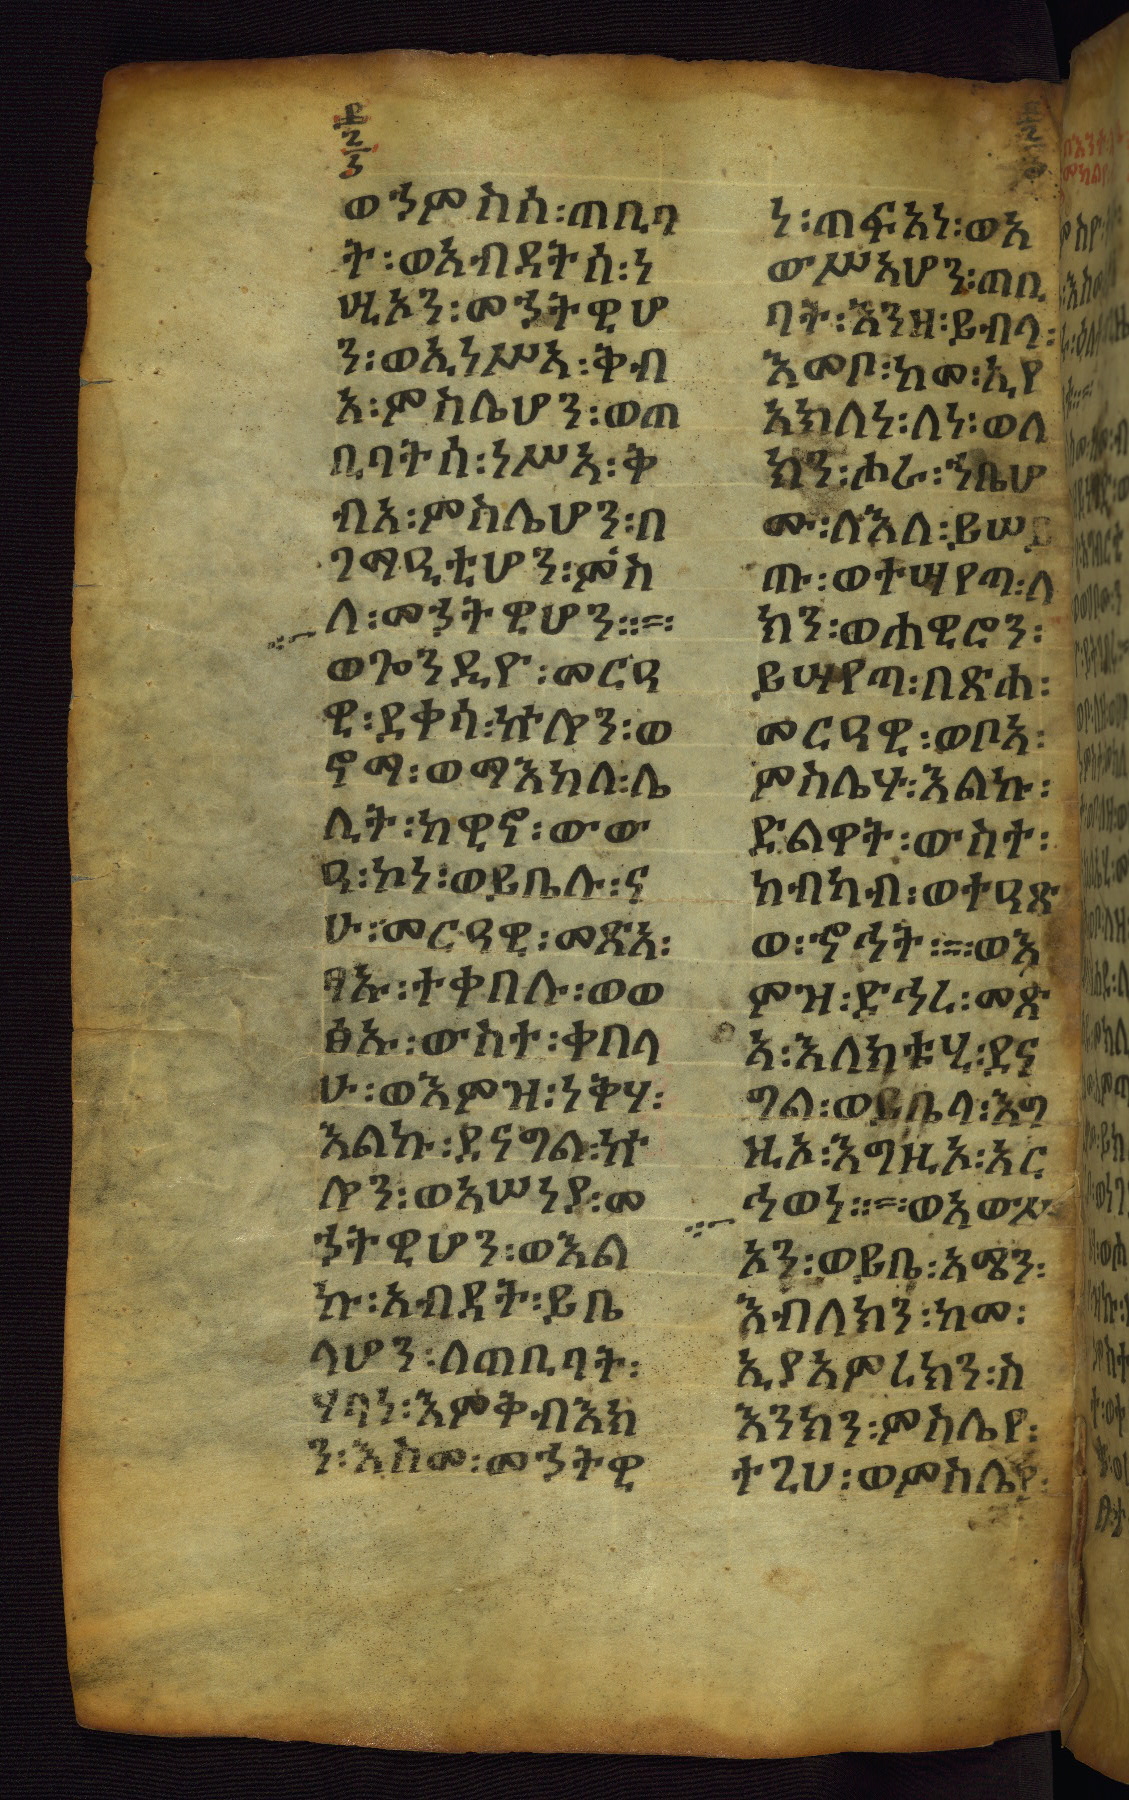 ወኀምስሰ፡ጠቢባ
ት፡ወአብዳትሰ፡ነ
ሢኦን፡መኀትዊሆ
ን፡ወኢነሥኣ፡ቅብ
አ፡ምስሌሆን፡ወጠ
ቢባትሰ፡ነሥኣ፡ቅ
ብአ፡ምስሌሆን፡በ
ገማዲቲሆን፡ምስ
ለ፡መኀትዊሆን፡፡=፡
ወጐንዲዮ፡መርዓ
ዊ፡ደቀሳ፡ኵሎን፡ወ
ኖማ፡ወማእከለ፡ሌ
ሊት፡ከዊኖ፡ውው
ዓ፡ኮነ፡ወይቤሉ፡ና
ሁ፡መርዓዊ፡መጽአ፡
ፃኡ፡ተቀበሉ፡ወወ
ፅኡ፡ውስተ፡ቀበላ
ሁ፡ወእምዝ፡ነቅሃ፡
እልኩ፡ደናግል፡ኵ
ሎን፡ወአሠነያ፡መ
ኀትዊሆን፡ወእል
ኩ፡አብዳት፡ይቤ
ላሆን፡ለጠቢባት፡
ሃባነ፡እምቅብእክ
ን፡እስመ፡መኀትዊ
ነ፡ጠፍአነ፡ወአ
ውሥኣሆን፡ጠቢ
ባት፡እንዘ፡ይብላ፡
እመቦ፡ከመ፡ኢየ
አክለነ፡ለነ፡ወለ
ክን፡ሑራ፡ኀቤሆ
ሙ፡ለእለ፡ይሠይ
ጡ፡ወተሣየጣ፡ለ
ክን፡ወሐዊሮን፡
ይሣየጣ፡በጽሐ፡
መርዓዊ፡ወቦኣ፡
ምስሌሁ፡እልኩ፡
ድልዋት፡ውስተ፡
ከብካብ፡ወተዓጽ
ወ፡ኆኅት፡=፡ወእ
ምዝ፡ድኅረ፡መጽ
ኣ፡እለክቱሂ፡ደና
ግል፡ወይቤላ፡እግ
ዚኦ፡እግዚኦ፡አር
ኅወነ፡፡=፡ወአውሥ
ኦን፡ወይቤ፡አሜን፡
እብለክን፡ከመ፡
ኢያአምረክን፡ስ
እንክን፡ምስሌየ፡
ትጊሀ፡ወምስሌየ፡